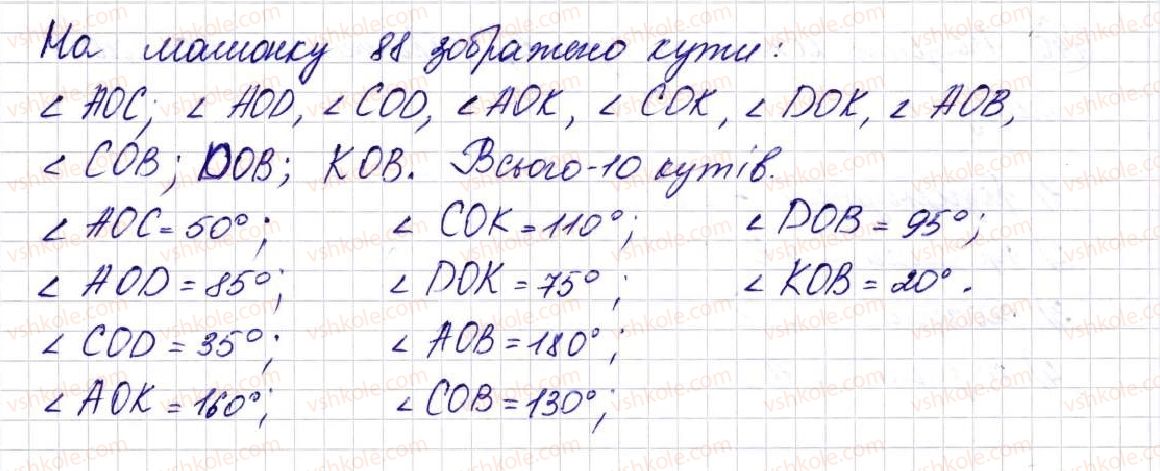 На малюнку 88 зображено кути:
∠ AOC; ∠ AOD, ∠ COD, ∠ AOK, ∠ COK, ∠ DOK, ∠ AOB,
∠ COB; DOB; KOB. Всього-10 кутів.
∠ AOC = 50°; ∠ COK = 110°; ∠ DOB = 95°;
∠ AOD = 85°; ∠ DOK = 75°; ∠ KOB = 20°.
∠ COD = 35°; ∠ AOB = 180°;
∠ AOK = 160°; ∠ COB = 130°;